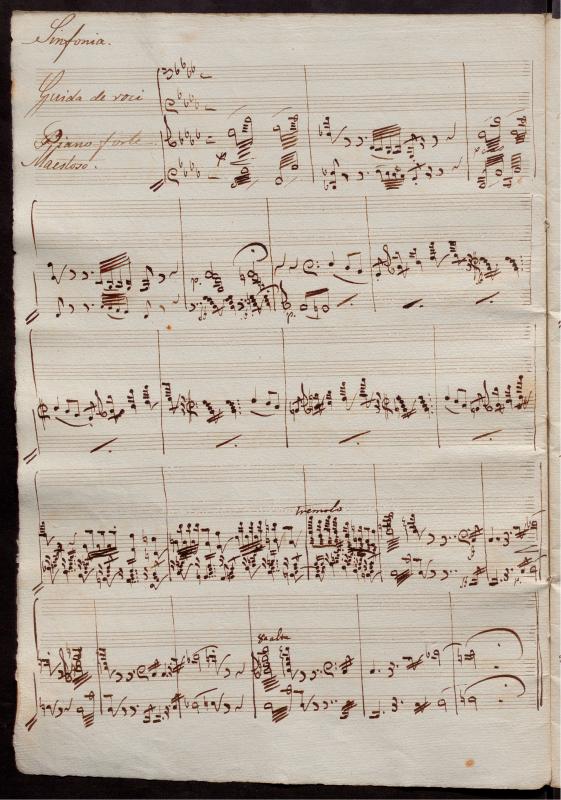 Sinfonia.
Guida de voci
Piano forte
Maestoso.
f
p.
p.
tremolo
8a alta